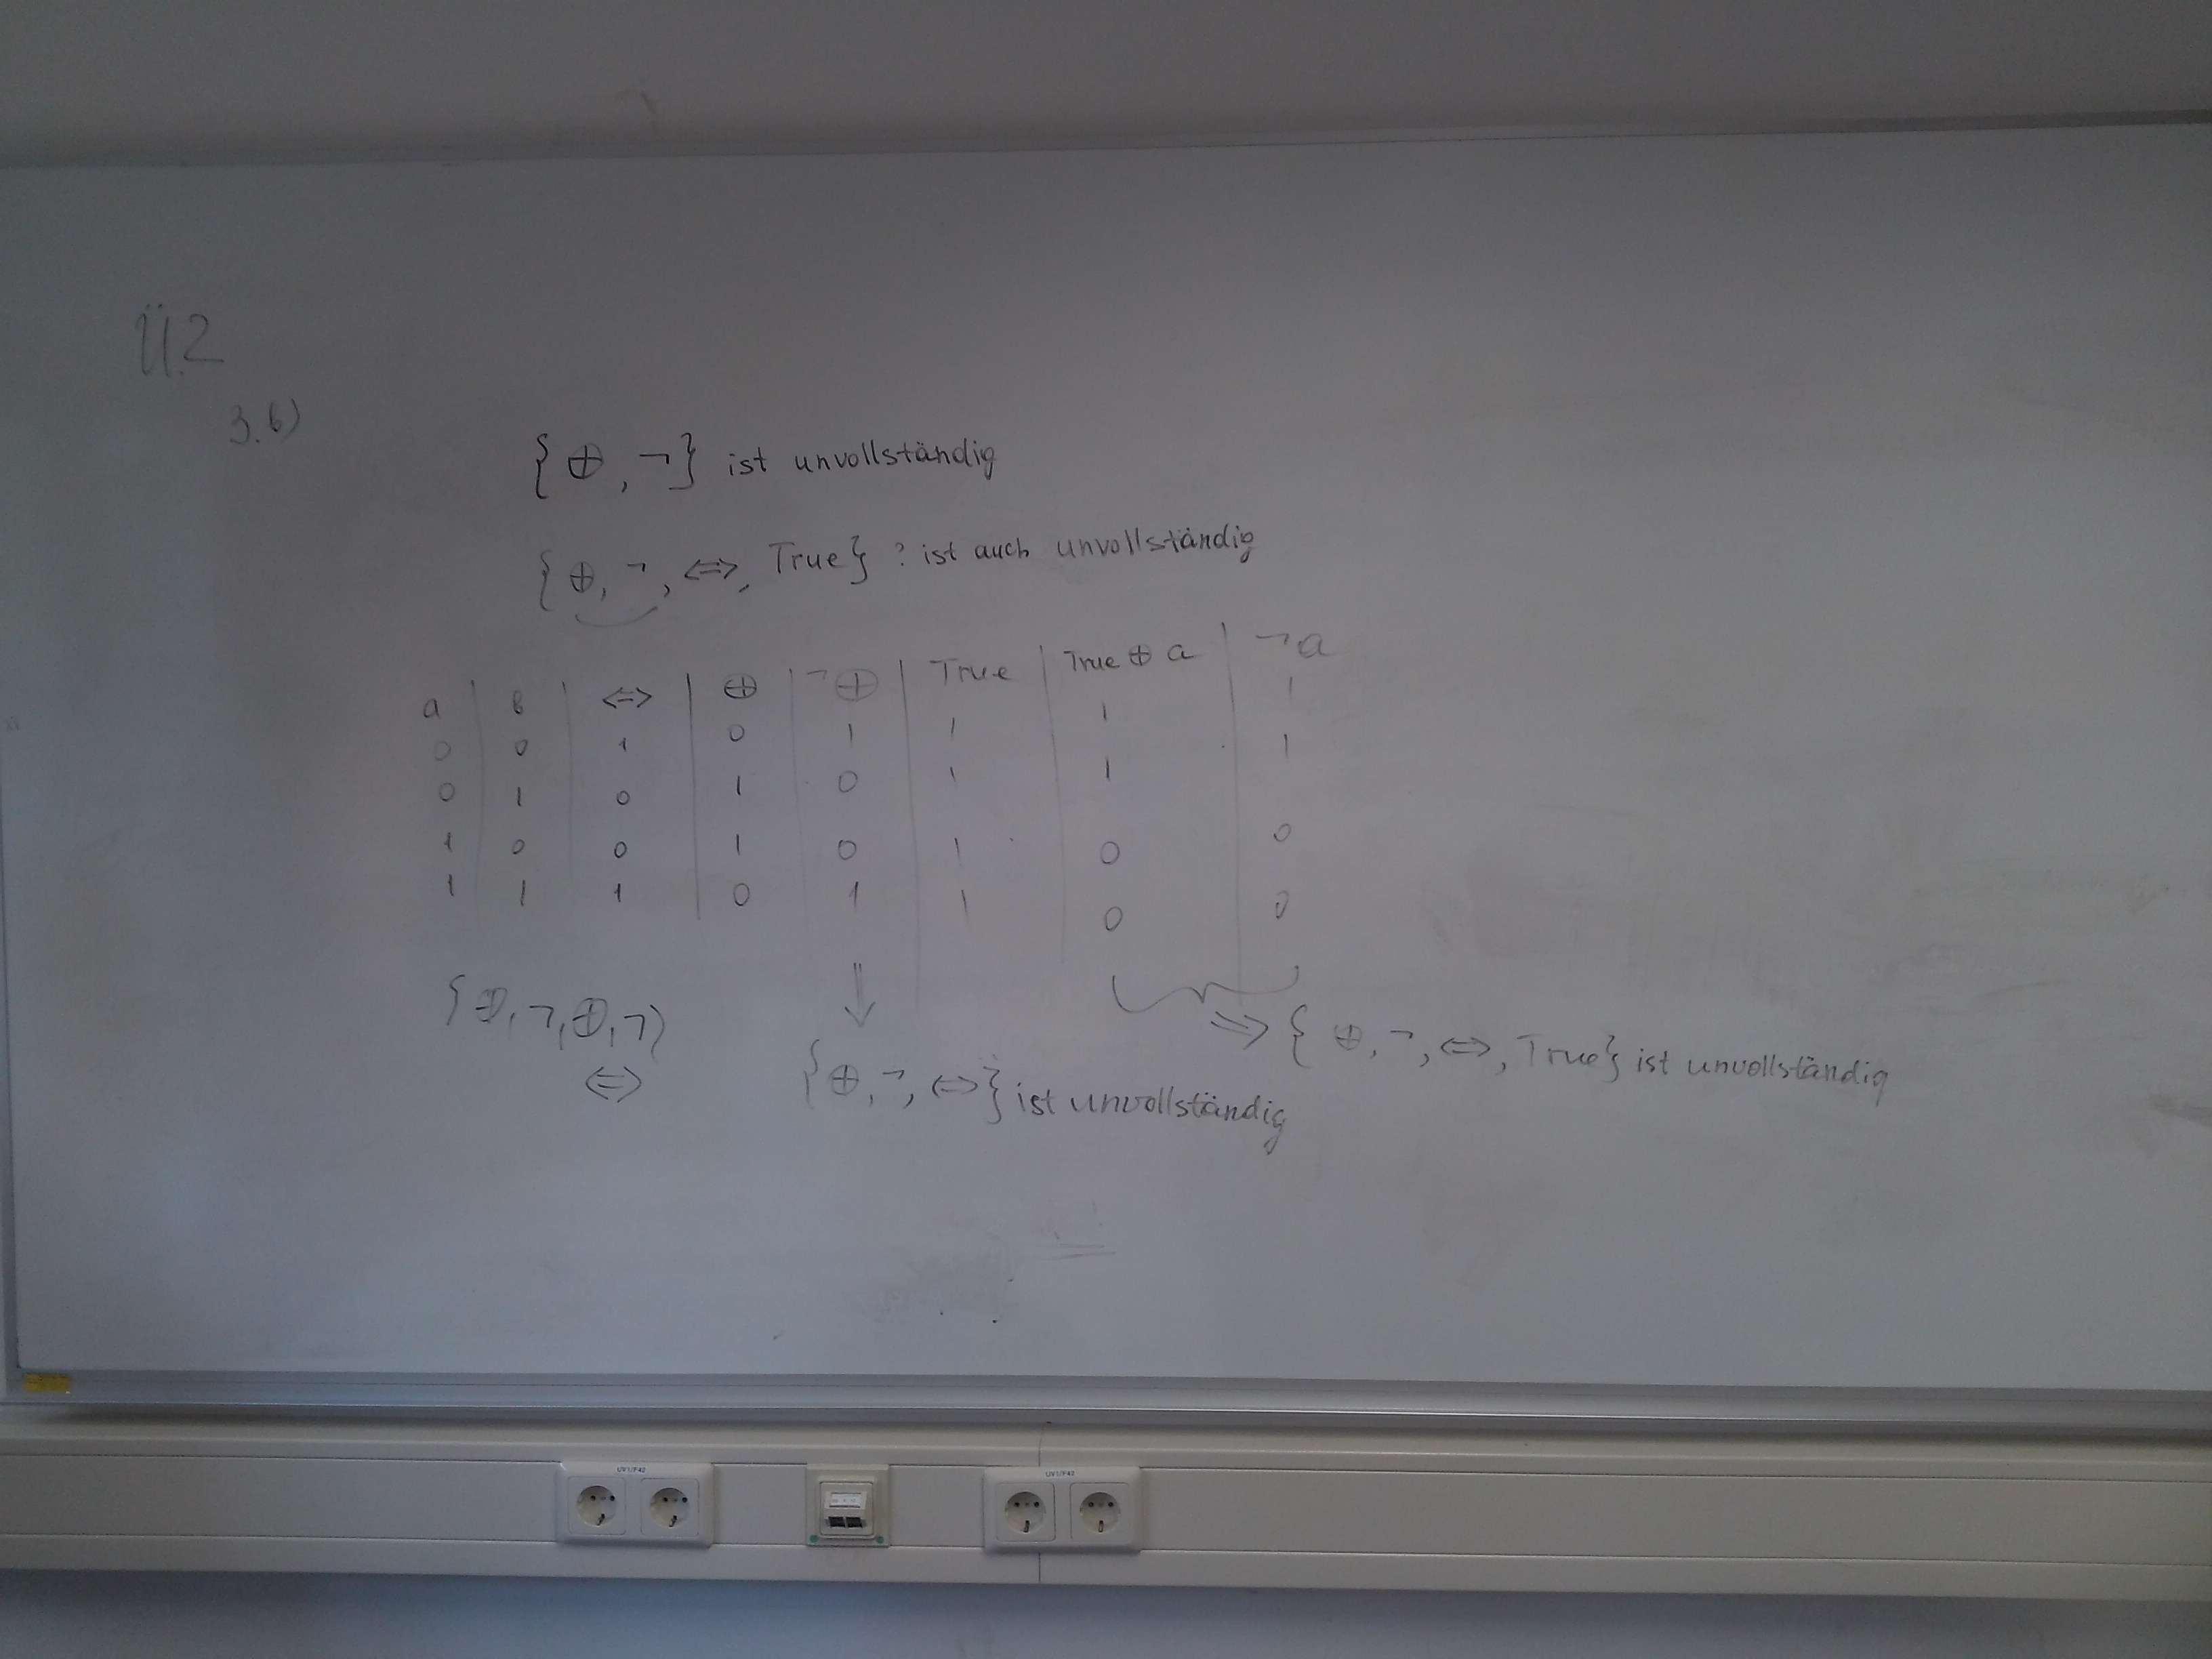 Ü.2
3.b)
{⊕, ¬} ist unvollständig
{⊕, ¬, ⇔, True} ? ist auch unvollständig
a | b | ⇔ | ⊕ | ¬⊕ | True | True ⊕ a | ¬a
0 0 1 0 1 1 1 1
0 1 0 1 0 1 1 1
1 0 0 1 0 1 0 0
1 1 1 0 1 1 0 0
{⊕, ¬, ⊕, ¬}
⇔
⇓
{⊕, ¬, ⇔} ist unvollständig
⇒ {⊕, ¬, ⇔, True} ist unvollständig
UV1/F42
UV1/F42